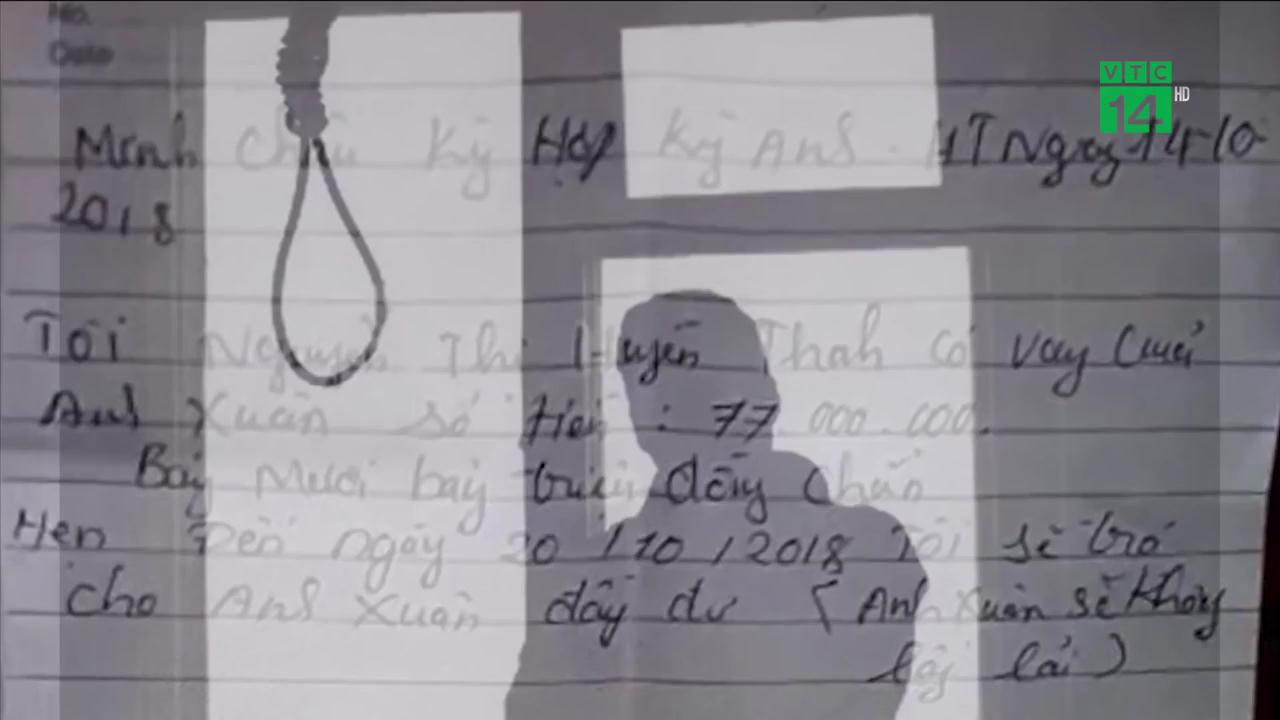 No.
Date
VTC
14 HD
Minh Châu Kỳ Hợp Kỳ Anh - HT Ngày 14-10
2018
Tôi Nguyễn Thị Huyền Thanh có vay của
Anh Xuân số tiền : 77 000.000.
Bảy mươi bảy triệu đồng chẵn
Hẹn Đến ngày 20/10/2018 Tôi sẽ trả
cho Anh Xuân đầy đủ ( Anh Xuân sẽ không
lấy lãi )